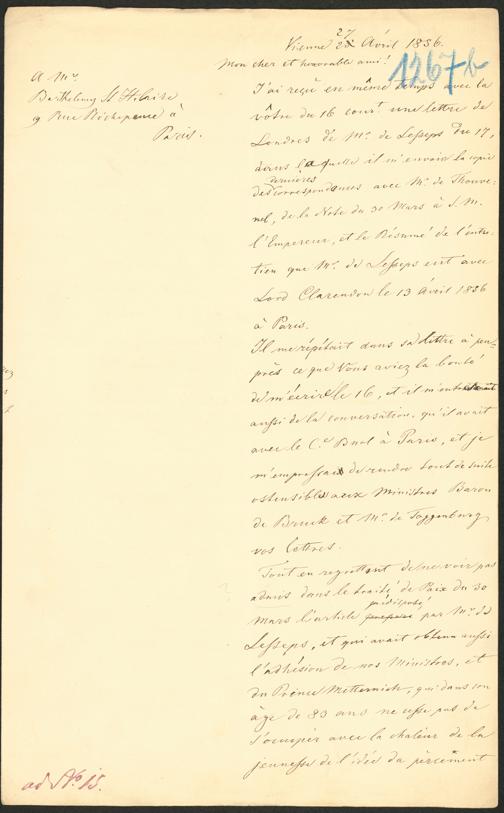 27
Vienne 28 Avril 1856.
1267b
Mon cher et honorable ami!
A Mr
Barthelemy St Hilaire
9 Rue Richepance à
Paris.
J'ai reçu en même temps avec la
vôtre du 16 court une lettre de
Londres de Mr de Lesseps du 17,
dans laquelle il m'envoie la copie
dernières
des correspondances avec Mr de Thouve-
nel, de la Note du 30 Mars à S. M.
l'Empereur, et le Résumé de l'entre-
tien que Mr de Lesseps eut avec
Lord Clarendon le 13 Avril 1856
à Paris.
Il me répétait dans sa lettre à peu
près ce que Vous aviez la bonté
de m'écrire le 16, et il m'
aussi de la conversation, qu'il avait
avec le Cte Buol à Paris, et je
m'empressai de rendre tout de suite
ostensibles aux Ministres Baron
de Bruck et Mr de Toggenburg
vos lettres.
Tout en regrettant de ne voir pas
admis dans le traité de Paix du 30
prédisposé
Mars l'article par Mr de
Lesseps, et qui avait obtenu aussi
l'adhésion de nos Ministres, et
du Prince Metternich, qui dans son
âge de 83 ans ne cesse pas de
s'occuper avec la chaleur de la
jeunesse de l'idée du percement
ad No 15.